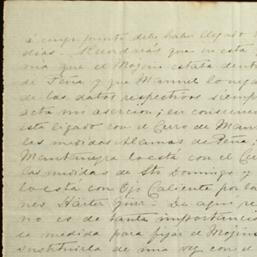 á cuyo punto debe haber llegado
dias. Recordarás que en esta
nia que el Mojino estaba dentro
de Peña y que Manuel lo nega
de los datos respectivos siempre
acta mi asercion; en consecuencia
está ligado con el Cerro de
las medidas Alamas de Peña;
Mantanegra lo está con el Cer
las medidas de Sto Domingo y
lo está con Ojo Caliente por las
nes Härter y De aquí re
no es de tanta importancia
la medida para fijar el Mojino
instituirla de una vez con el